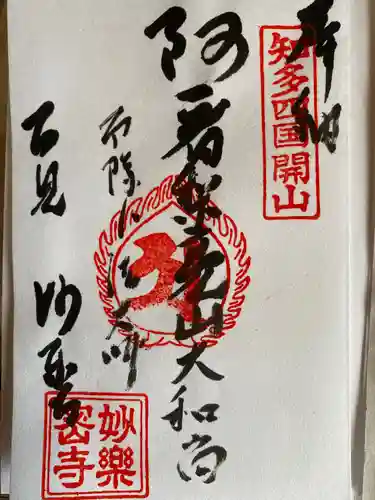 奉納
知多四国開山
阿闍梨亮山大和尚
古見 妙楽寺
妙樂
密寺